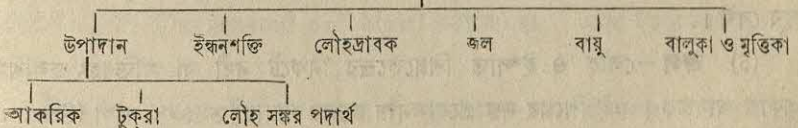 উপাদান ইন্ধনশক্তি লৌহদ্রাবক জল বায়ু বালুকা ও মৃত্তিকা
আকরিক টুকরা লৌহ সঙ্কর পদার্থ